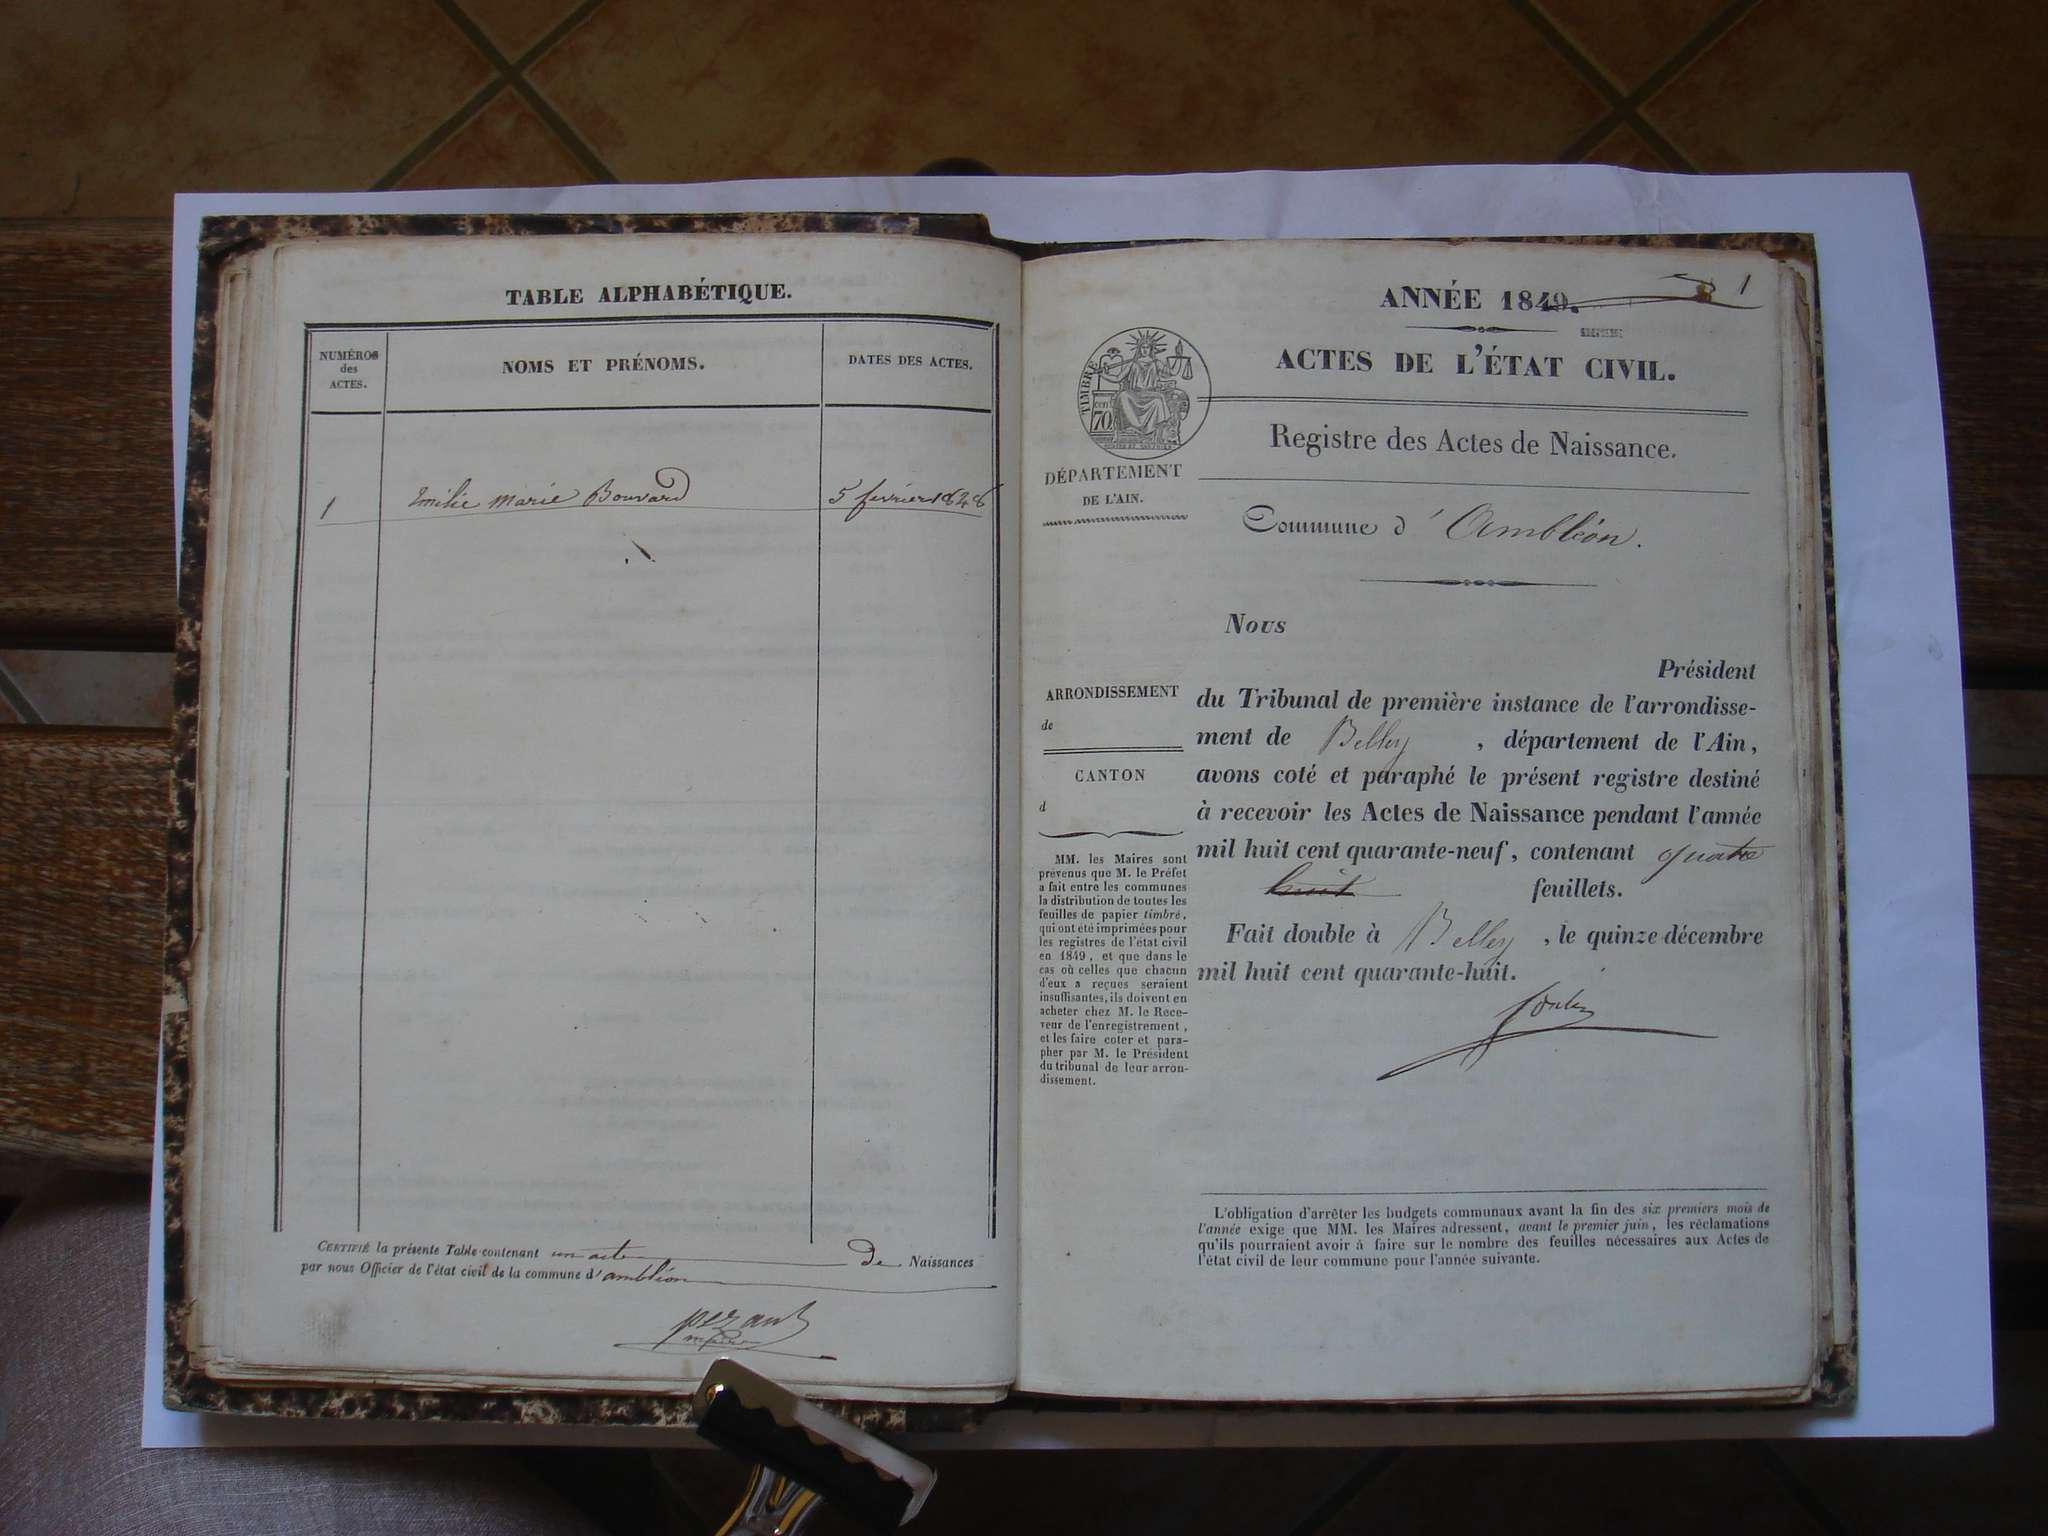 TABLE ALPHABÉTIQUE.
NUMÉROS
des
ACTES.
NOMS ET PRÉNOMS.
DATES DES ACTES.
1 Emilie Marie Bouvard 5 fevrier 1848
CERTIFIÉ la présente Table contenant un acte de Naissances
par nous Officier de l'état civil de la commune d'ambléon
pezant
maire
1
ANNÉE 1849.
ACTES DE L'ÉTAT CIVIL.
TIMBRE
70
Registre des Actes de Naissance.
DÉPARTEMENT
DE L'AIN.
Commune d'Ambléon.
Nous
Président
du Tribunal de première instance de l'arrondisse-
ment de Belley, département de l'Ain,
avons coté et paraphé le présent registre destiné
à recevoir les Actes de Naissance pendant l'année
mil huit cent quarante-neuf, contenant quatre
huit feuillets.
Fait double à Belley, le quinze décembre
mil huit cent quarante-huit.
ARRONDISSEMENT
de
CANTON
d
MM. les Maires sont
prévenus que M. le Préfet
a fait entre les communes
la distribution de toutes les
feuilles de papier timbré,
qui ont été imprimées pour
les registres de l'état civil
en 1849, et que dans le
cas où celles que chacun
d'eux a reçues seraient
insuffisantes, ils doivent en
acheter chez M. le Rece-
veur de l'enregistrement,
et les faire coter et para-
pher par M. le Président
du tribunal de leur arron-
dissement.
L'obligation d'arrêter les budgets communaux avant la fin des six premiers mois de
l'année exige que MM. les Maires adressent, avant le premier juin, les réclamations
qu'ils pourraient avoir à faire sur le nombre des feuilles nécessaires aux Actes de
l'état civil de leur commune pour l'année suivante.